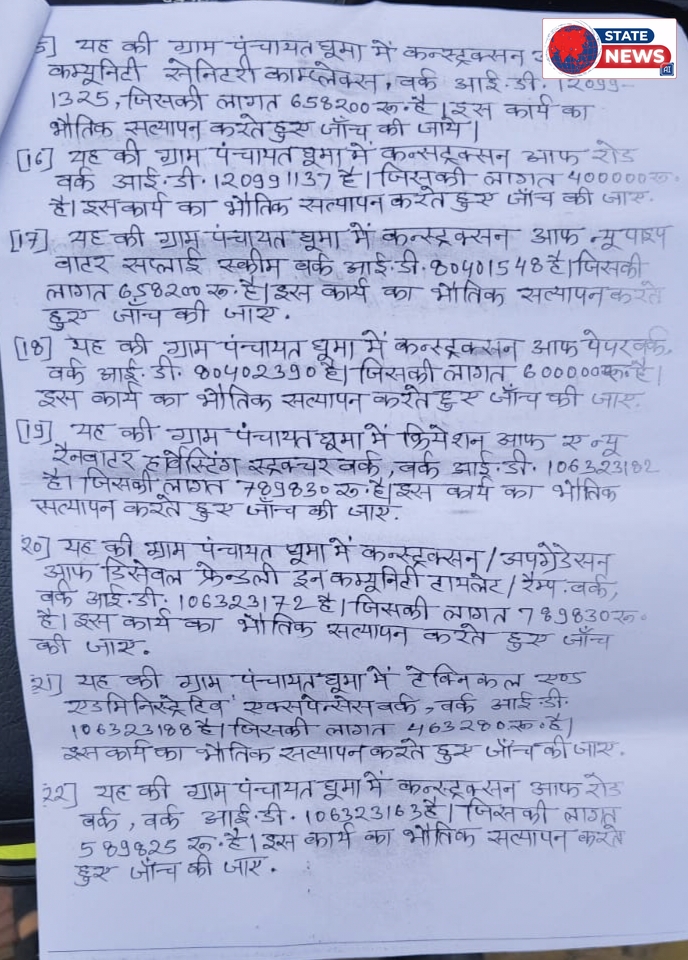 STATE
NEWS
AI
5] यह की ग्राम पंचायत घूमा में कन्स्ट्रक्सन
कम्यूनिटी सेनिटरी काम्प्लेक्स, वर्क आई.डी. 12099-
1325, जिसकी लागत 658200 रू. है। इस कार्य का
भौतिक सत्यापन करते हुए जाँच की जाये।
[16] यह की ग्राम पंचायत घूमा में कन्सट्रक्सन आफ रोड
वर्क आई.डी. 120991137 है। जिसकी लागत 400000 रू.
है। इस कार्य का भौतिक सत्यापन करते हुए जाँच की जाए.
[17] यह की ग्राम पंचायत घूमा में कन्स्ट्रक्सन आफ न्यू पाइप
वाटर सप्लाई स्कीम वर्क आई.डी. 80401548 है। जिसकी
लागत 658200 रू. है। इस कार्य का भौतिक सत्यापन करते
हुए जाँच की जाए.
[18] यह की ग्राम पंचायत घूमा में कन्स्ट्रक्सन आफ पेपर वर्क,
वर्क आई.डी. 80402390 है। जिसकी लागत 600000 रू. है।
इस कार्य का भौतिक सत्यापन करते हुए जाँच की जाए.
[19] यह की ग्राम पंचायत घूमा में क्रियेशन आफ ए न्यू
रैनवाटर हार्वेस्टिंग स्ट्रक्चर वर्क, वर्क आई.डी. 106323182
है। जिसकी लागत 789830 रू. है। इस कार्य का भौतिक
सत्यापन करते हुए जाँच की जाए.
20] यह की ग्राम पंचायत घूमा में कन्स्ट्रक्सन / अपग्रेडेसन
आफ डिसेवल फ्रेन्डली इन कम्यूनिटी टायलेट / रैम्प वर्क,
वर्क आई.डी. 106323172 है। जिसकी लागत 789830 रू.
है। इस कार्य का भौतिक सत्यापन करते हुए जाँच
की जाए.
21] यह की ग्राम पंचायत घूमा में टेक्निकल एण्ड
एडमिनिस्ट्रेटिव एक्सपेन्सेस वर्क, वर्क आई.डी.
106323188 है। जिसकी लागत 463280 रू. है।
इस कार्य का भौतिक सत्यापन करते हुए जाँच की जाए.
22] यह की ग्राम पंचायत घूमा में कन्स्ट्रक्सन आफ रोड
वर्क, वर्क आई.डी. 106323163 है। जिसकी लागत
589825 रू. है। इस कार्य का भौतिक सत्यापन करते
हुए जाँच की जाए.